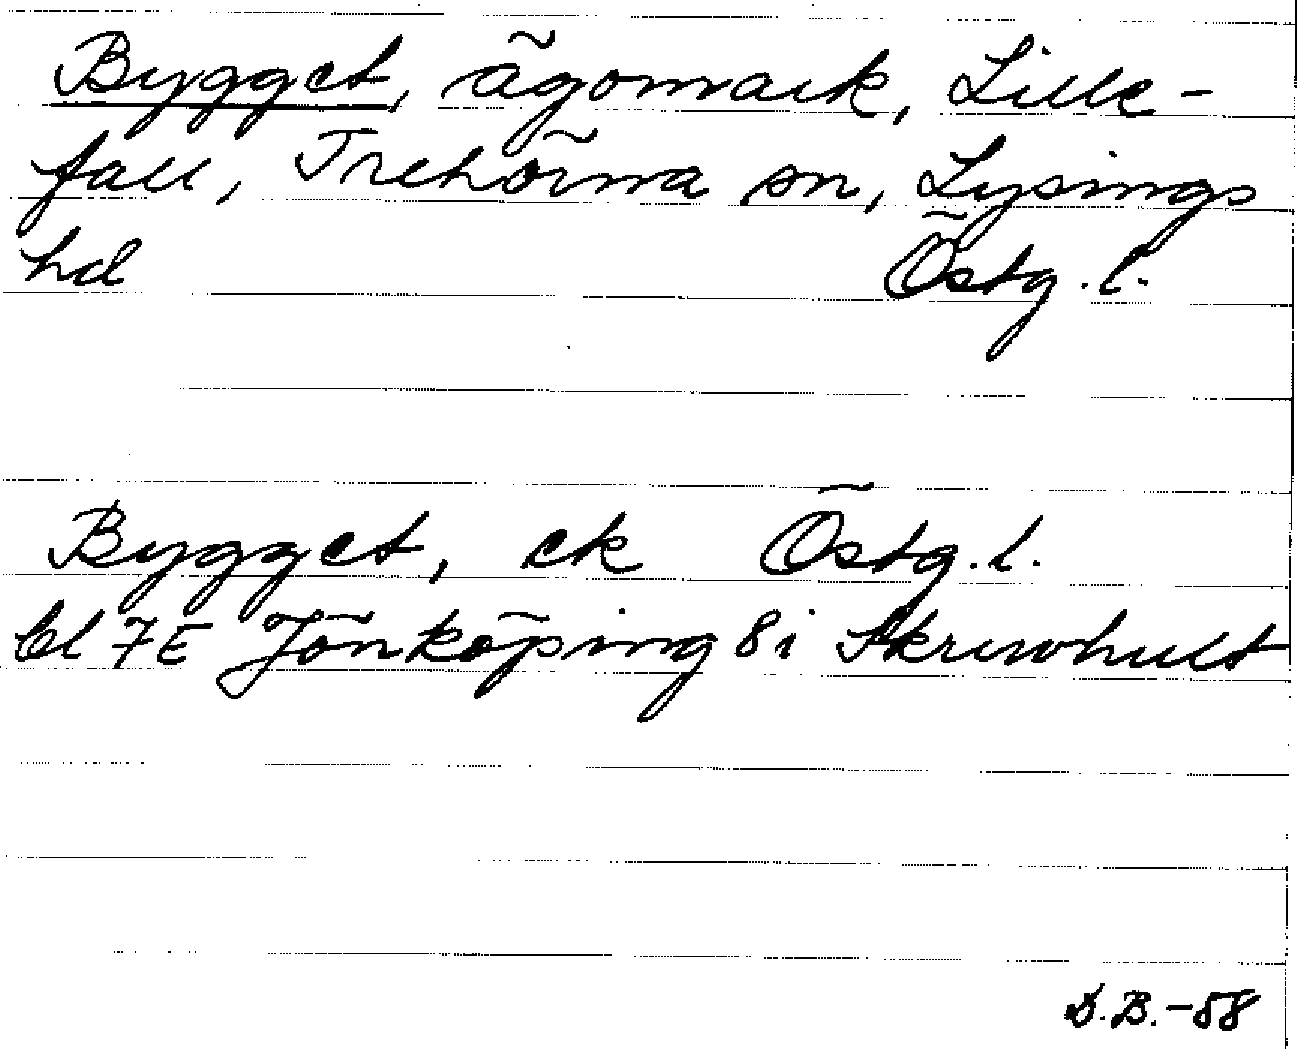 Bygget, ägomark, Lille-
fall, Trehörna sn, Lysings
hd Östg. l.
Bygget, ek Östg. l.
bl 7E Jönköping 8i Skruvhult
D.B.-58